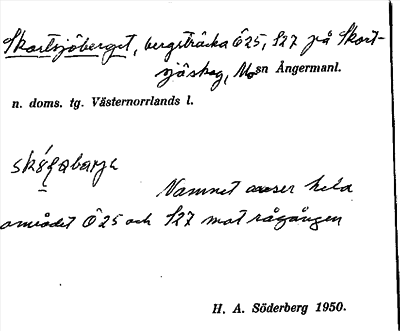 Skortsjöberget, bergsträcka Ö25, S27 på Skort-
sjöskog, Mosn Ångermanl.
n. doms. tg. Västernorrlands l.
Namnet avser hela
området Ö25 och S27 mot rågången
H. A. Söderberg 1950.